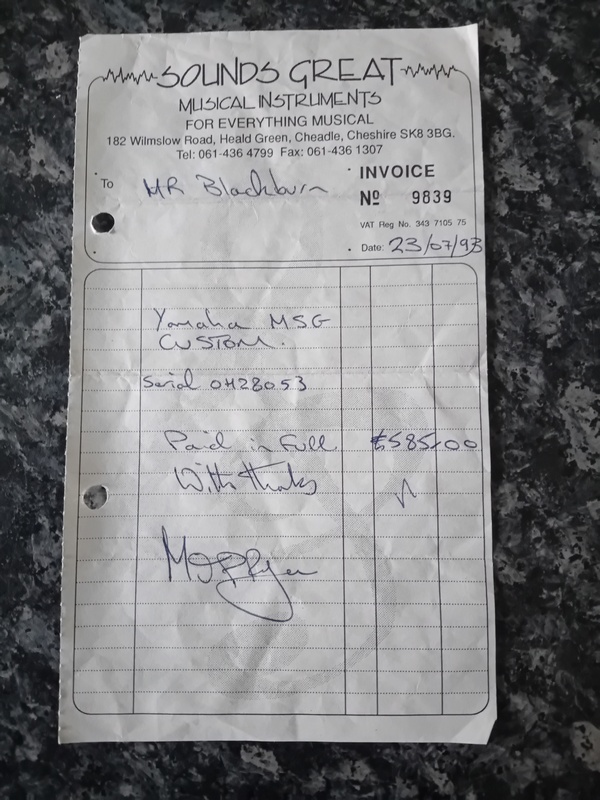 SOUNDS GREAT
MUSICAL INSTRUMENTS
FOR EVERYTHING MUSICAL
182 Wilmslow Road, Heald Green, Cheadle, Cheshire SK8 3BG.
Tel: 061-436 4799 Fax: 061-436 1307
To MR Blackburn
INVOICE
Nº 9839
VAT Reg No. 343 7105 75
Date: 23/07/93
Yamaha MSG
CUSTOM.
Serial OH28053
Paid in Full £585/00
With thanks